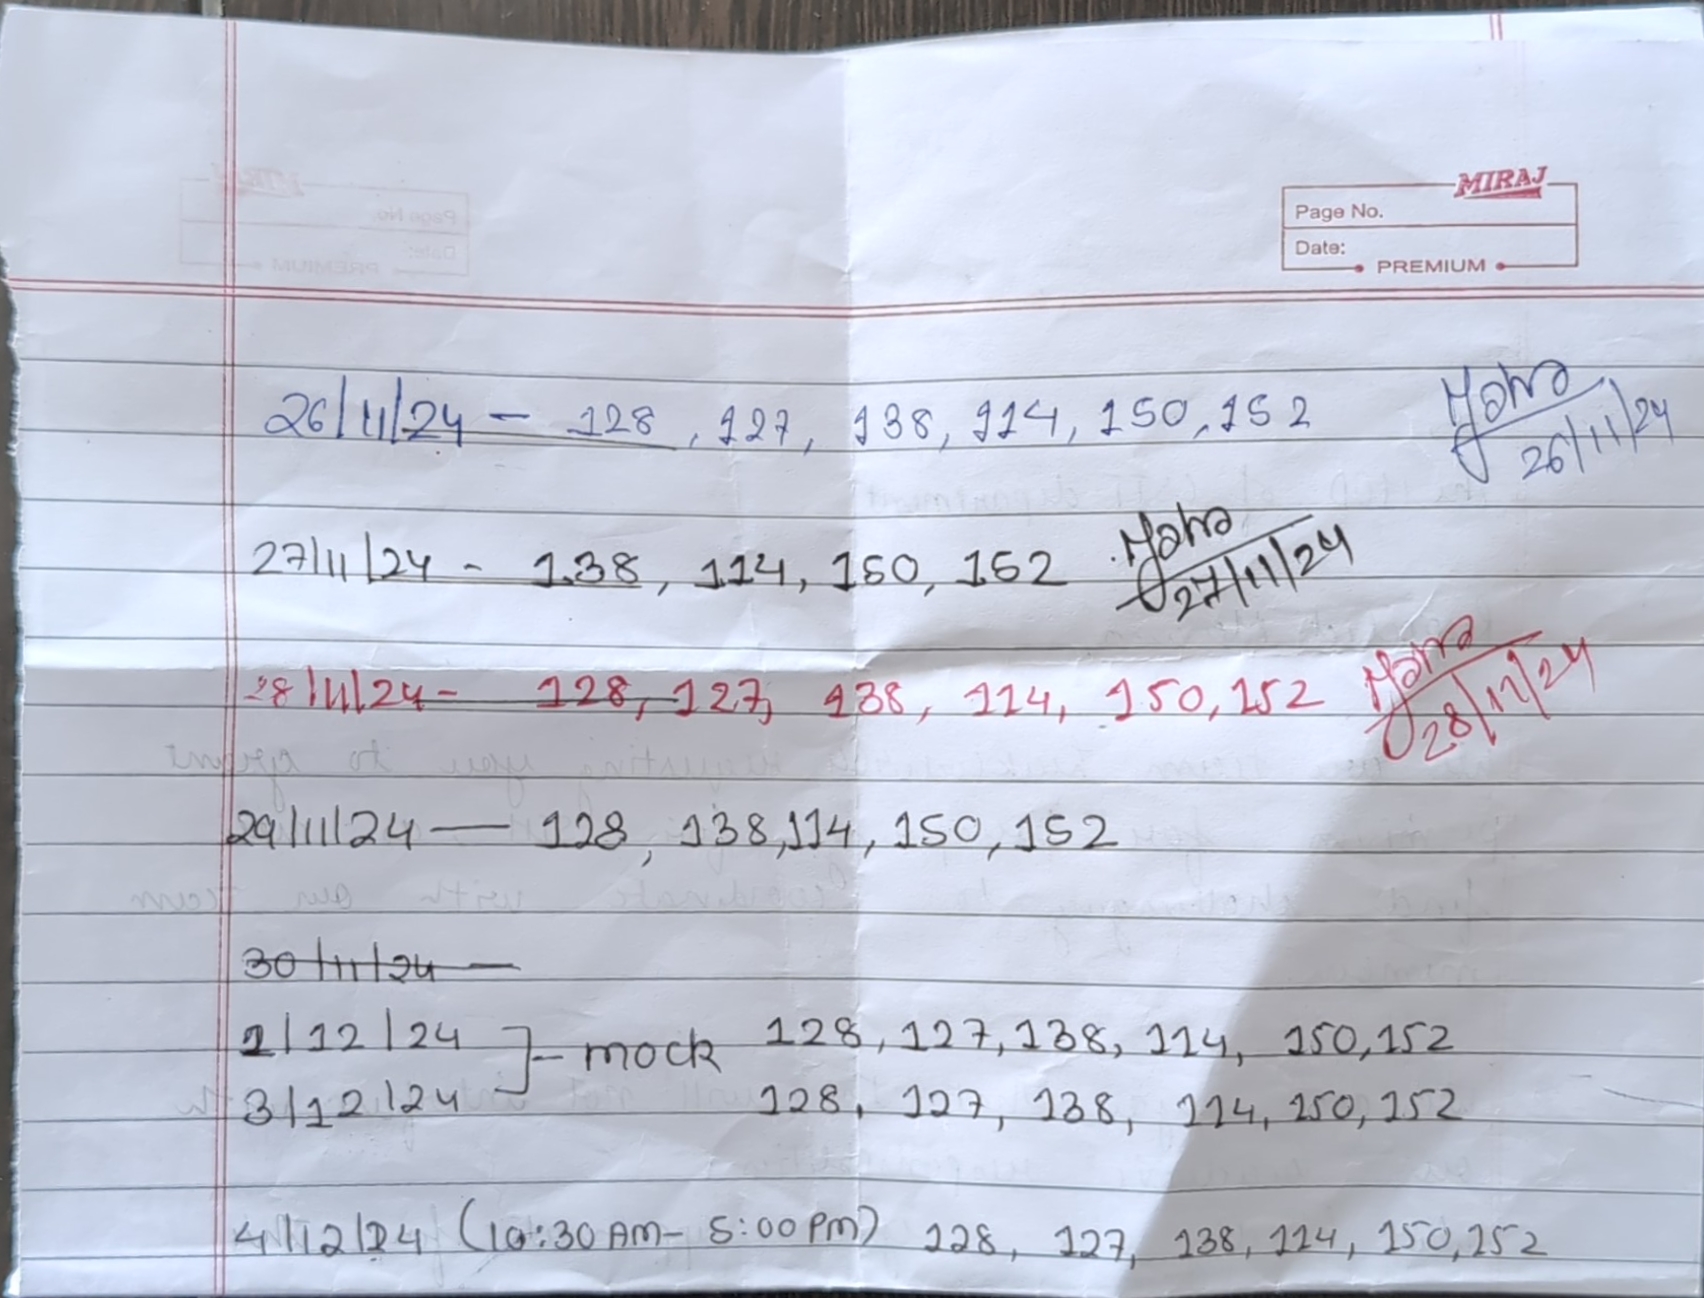 MIRAJ
Page No.
Date:
PREMIUM
26/11/24 - 128, 127, 138, 114, 150, 152 26/11/24
27/11/24 - 138, 114, 150, 152 27/11/24
28/11/24 - 128, 127, 138, 114, 150, 152 28/11/24
29/11/24 - 128, 138, 114, 150, 152
30/11/24 -
2/12/24 ] - mock 128, 127, 138, 114, 150, 152
3/12/24 128, 127, 138, 114, 150, 152
4/12/24 (10:30 AM - 5:00 PM) 128, 127, 138, 114, 150, 152